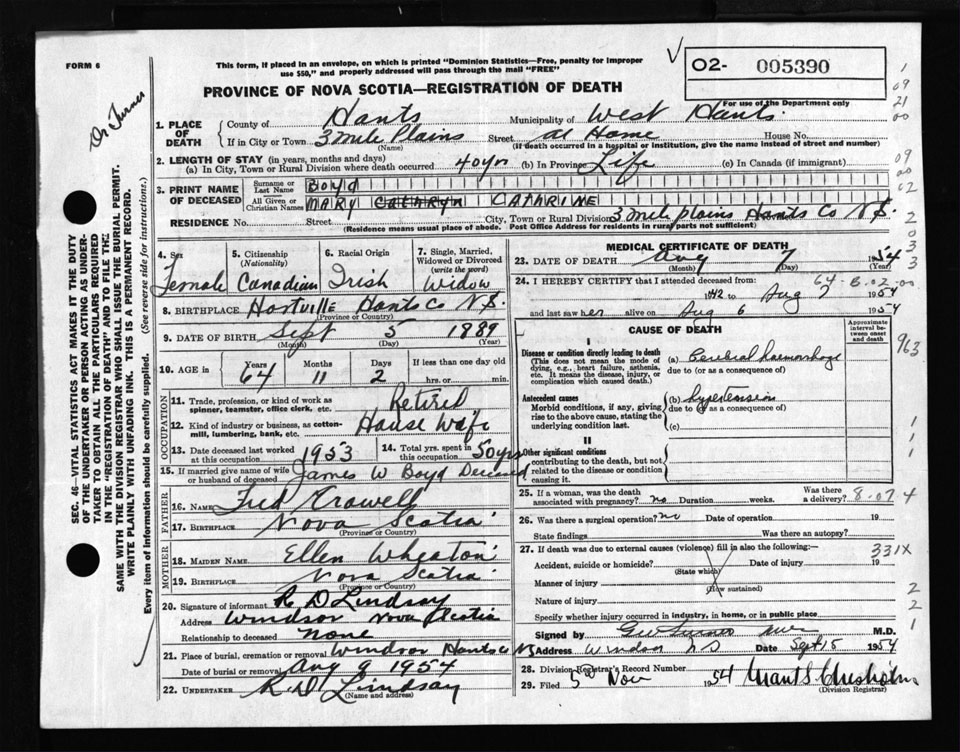 FORM 6
This form, if placed in an envelope, on which is printed "Dominion Statistics—Free, penalty for improper
use $50," and properly addressed will pass through the mail "FREE"
PROVINCE OF NOVA SCOTIA—REGISTRATION OF DEATH
02- 005390
For use of the Department only
Dr Turner
SEC. 46—VITAL STATISTICS ACT MAKES IT THE DUTY
OF THE UNDERTAKER OR PERSON ACTING AS UNDER-
TAKER TO OBTAIN ALL THE PARTICULARS REQUIRED
IN THE "REGISTRATION OF DEATH" AND TO FILE THE
SAME WITH THE DIVISION REGISTRAR WHO SHALL ISSUE THE BURIAL PERMIT.
WRITE PLAINLY WITH UNFADING INK. THIS IS A PERMANENT RECORD.
Every item of information should be carefully supplied. (See reverse side for instructions.)
1. PLACE OF DEATH County of Hants Municipality of West Hants
If in City or Town 3 Mile Plains Street at Home House No.
(Name) (If death occurred in a hospital or institution, give the name instead of street and number)
2. LENGTH OF STAY (in years, months and days)
(a) In City, Town or Rural Division where death occurred 40 yrs (b) In Province Life (c) In Canada (if immigrant)
3. PRINT NAME OF DECEASED Surname or Last Name Boyd
All Given or Christian Names MARY CATHRYN CATHRINE
RESIDENCE No. Street City, Town or Rural Division 3 mile plains Hants Co N.S.
(Residence means usual place of abode. Post Office Address for residents in rural parts not sufficient)
4. Sex Female
5. Citizenship (Nationality) Canadian
6. Racial Origin Irish
7. Single, Married, Widowed or Divorced (write the word) Widow
8. BIRTHPLACE Hants Co N.S.
(Province or Country)
9. DATE OF BIRTH Sept 5 1889
(Month) (Day) (Year)
10. AGE in Years 64 Months 11 Days 2 If less than one day old
hrs. or min.
OCCUPATION
11. Trade, profession, or kind of work as
spinner, teamster, office clerk, etc. Retired
12. Kind of industry or business, as cotton-
mill, lumbering, bank, etc. House Wife
13. Date deceased last worked at this occupation 1953
14. Total yrs. spent in this occupation 50 yrs
15. If married give name of wife
or husband of deceased James W Boyd Deceased
FATHER
16. NAME Fred Crowell
17. BIRTHPLACE Nova Scotia
(Province or Country)
MOTHER
18. MAIDEN NAME Ellen Wheaton
19. BIRTHPLACE Nova Scotia
(Province or Country)
20. Signature of informant R D Lindsay
Address Windsor Nova Scotia
Relationship to deceased None
21. Place of burial, cremation or removal Windsor Hants Co NS
Date of burial or removal Aug 9 1954
22. UNDERTAKER R D Lindsay
(Name and address)
MEDICAL CERTIFICATE OF DEATH
23. DATE OF DEATH Aug 7 1954
(Month) (Day) (Year)
24. I HEREBY CERTIFY that I attended deceased from:
1942 to Aug 7 1954
and last saw her alive on Aug 6 1954
CAUSE OF DEATH
Approximate interval between onset and death
I
Disease or condition directly leading to death
(This does not mean the mode of
dying, e.g., heart failure, asthenia,
etc. It means the disease, injury, or
complication which caused death.)
(a) Cerebral haemorrhage
due to (or as a consequence of)
Antecedent causes
Morbid conditions, if any, giving
rise to the above cause, stating the
underlying condition last.
(b) hypertension
due to (or as a consequence of)
(c)
II
Other significant conditions
contributing to the death, but not
related to the disease or condition
causing it.
25. If a woman, was the death
associated with pregnancy? no Duration weeks. Was there a delivery?
8.07 4
26. Was there a surgical operation? no Date of operation 19
State findings Was there an autopsy?
27. If death was due to external causes (violence) fill in also the following:— 331X
Accident, suicide or homicide? Date of injury 19
(State which)
Manner of injury
(How sustained)
Nature of injury
Specify whether injury occurred in industry, in home, or in public place
Signed by M.D.
Address Windsor NS Date Sept 15 1954
28. Division Registrar's Record Number
29. Filed 5 Nov 1954 Grant S. Chisholm
(Division Registrar)
963